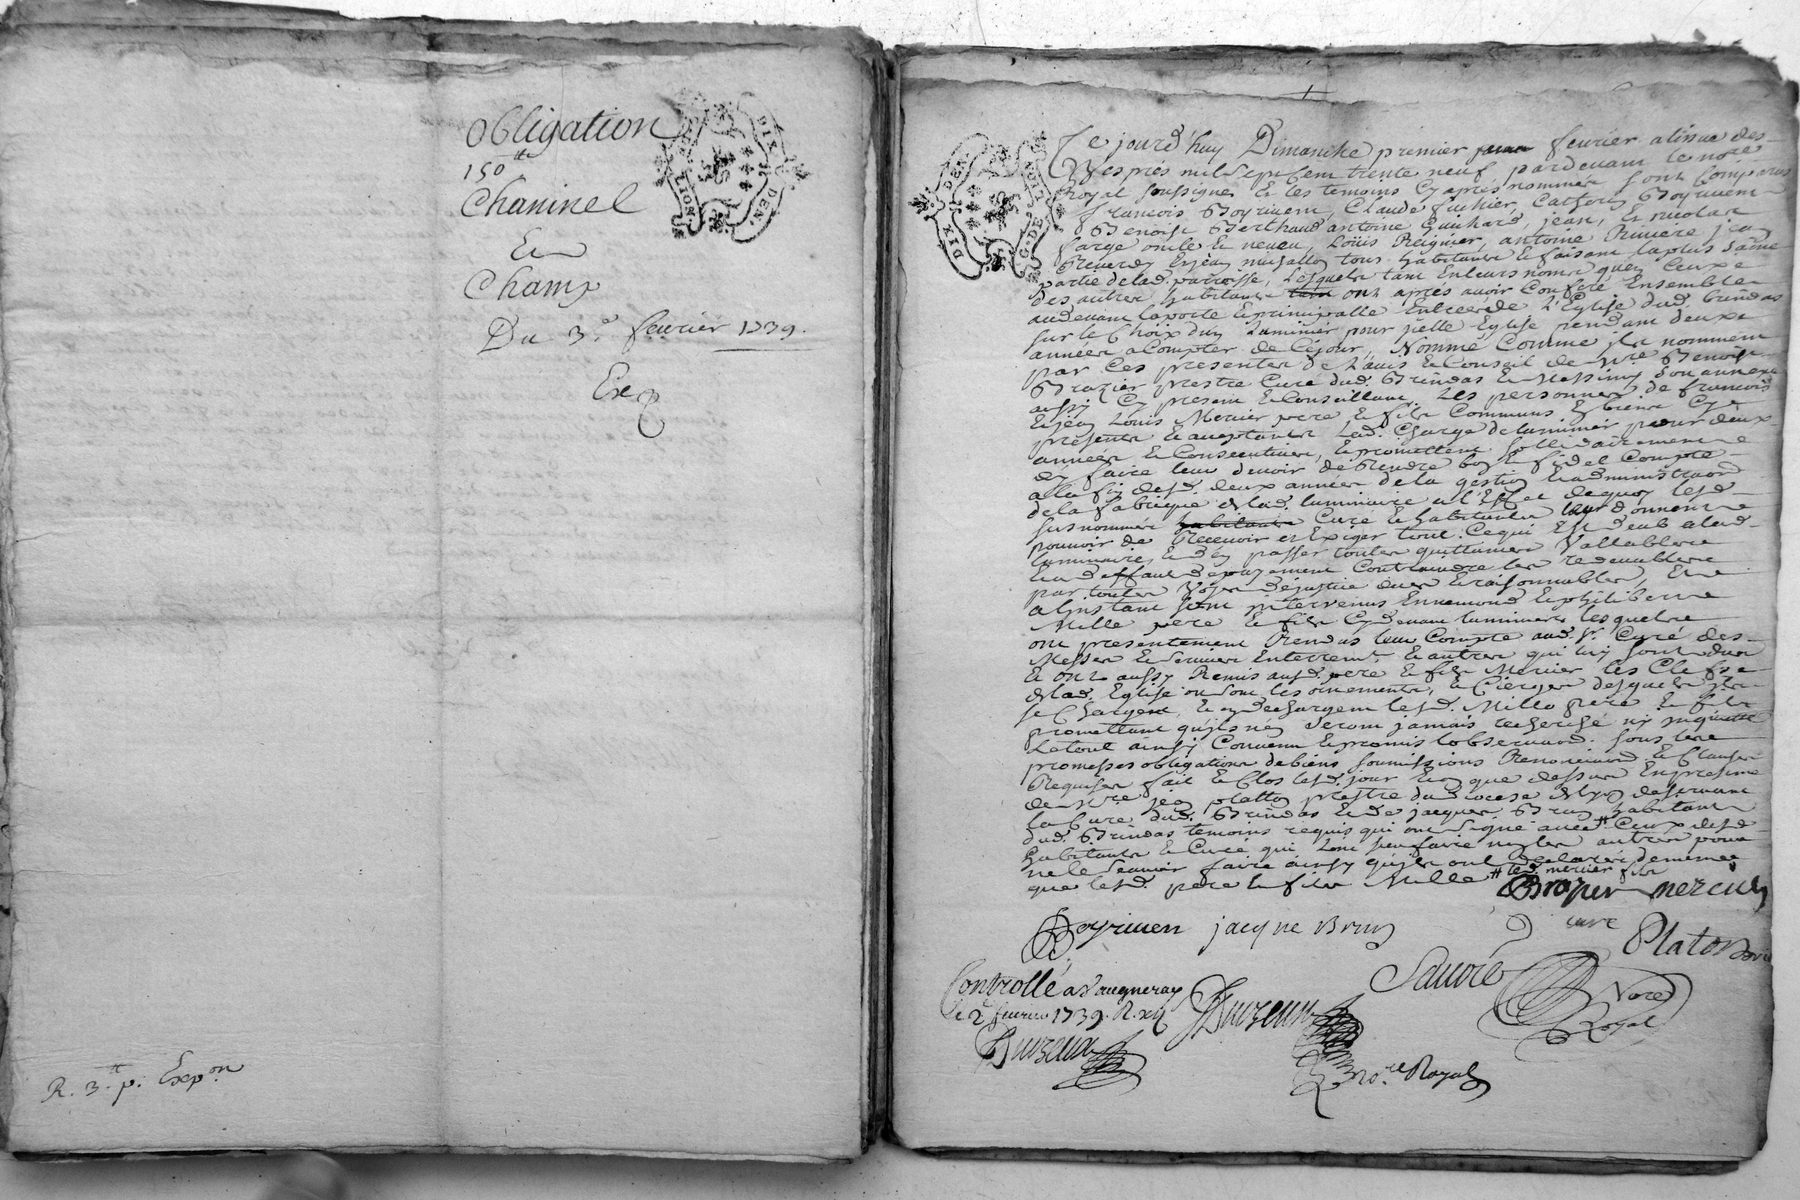 Obligation
150ᵗᵗ
Chaninel
Et
Champ
Du 3.ᵉ fevrier 1739.
Exp
R. 3.ᵗᵗ p. Expᵒⁿ
DIX DEN.
G. DE LION
Ce jourd'huy Dimanche premier fevrier a lissue des
Vespres mil sept cent trente neuf pardevant le noʳᵉ
Royal soussigné Et les temoins Cy apres nommés sont Comparus
francois Boyrivent, Claude
Benoist Berthaud antoine Guichard, jean, Et nicolas
farge oncle Et neveu, Loüis Reignier, antoine Riviere jean
tous habitants Et faisant la plus saine
partie de lad. parroisse, Lesquels tant En leurs noms que Ceux
des autres habitants ont apres avoir Conferé Ensemble
audevant la porte Et principalle Entrée de L'Eglise dud. Brindas
sur le Choix d'un Luminier pour jcelle Eglise pendant deux
années a Compter de Cejour, Nommé Comme jls nomment
par Ces presentes de Lavis Et Conseil de Mʳᵉ Benoist
Brazier prestre Curé dud. Brindas Et Messimy son annexe
aussy Cy present Et Conseillant. Les personnes de francois
Et jean Louis Mercier pere Et fils Communs En biens Cy
presents Et acceptants Lad. Charge de luminier pour deux
années Et Consecutives, Et promettent sollidairement
d'En faire leur devoir de Rendre bon Et fidel Compte
a la fin desd. deux années de la gestion Et administraon
de la fabrique Et lad. luminaire a l'Effet dequoy lesd.
susnommés Curé Et habitants leur donnent
pouvoir de Recevoir et Exiger tout Cequi Est deub a lad.
luminaire, Et d'En passer toutes quittances Vallables
Et a deffaut de payement Contraindre les redevables
par toutes Voyes de justice dues Et raisonnables, Et
a linstant sont intervenus Ennemond Et philibert
Mille pere Et fils Cydevant luminiers lesquels
ont presentement Rendus leur Compte aud. Sʳ. Curé des
Messes Et services Enterremᵗˢ. Et autres qui luy sont dus
Et ont aussy Remis ausd. pere Et fils Mercier les Clefs
de lad. Eglise ou sont les ornements, Et Cierges desquels jls
se Chargent Et En dechargent lesd. Mille pere Et fils
promettant qu'jls n'En seront jamais recherché ny inquietté
Le tout ainsy Convenu Et promis lobserver. sous les
promesses obligations de biens soumissions Renonciaons Et Clauses
Requises fait Et Clos lesd. jour Et an que dessus En presence
de Mʳᵉ jean platton prestre du diocese de Lyon deservant
la Cure dud. Brindas Et de jacques Brun habitant
dud. Brindas temoins requis qui ont signé avec # Ceux desd.
habitants Et Curé qui L'ont sceu faire non les autres pour
ne le scavoir faire ainsy qu'jls ont declarés de mesme
que lesd. pere Et fils Mille # led. mercier fils
Brazier mercier
curé
Boyrivent jacque Brun
Platon
Controllé a Vaugneray
le 2ᵉ fevrier 1739. R. xij
Noʳᵉ
Royal
Noʳᵉ Royal